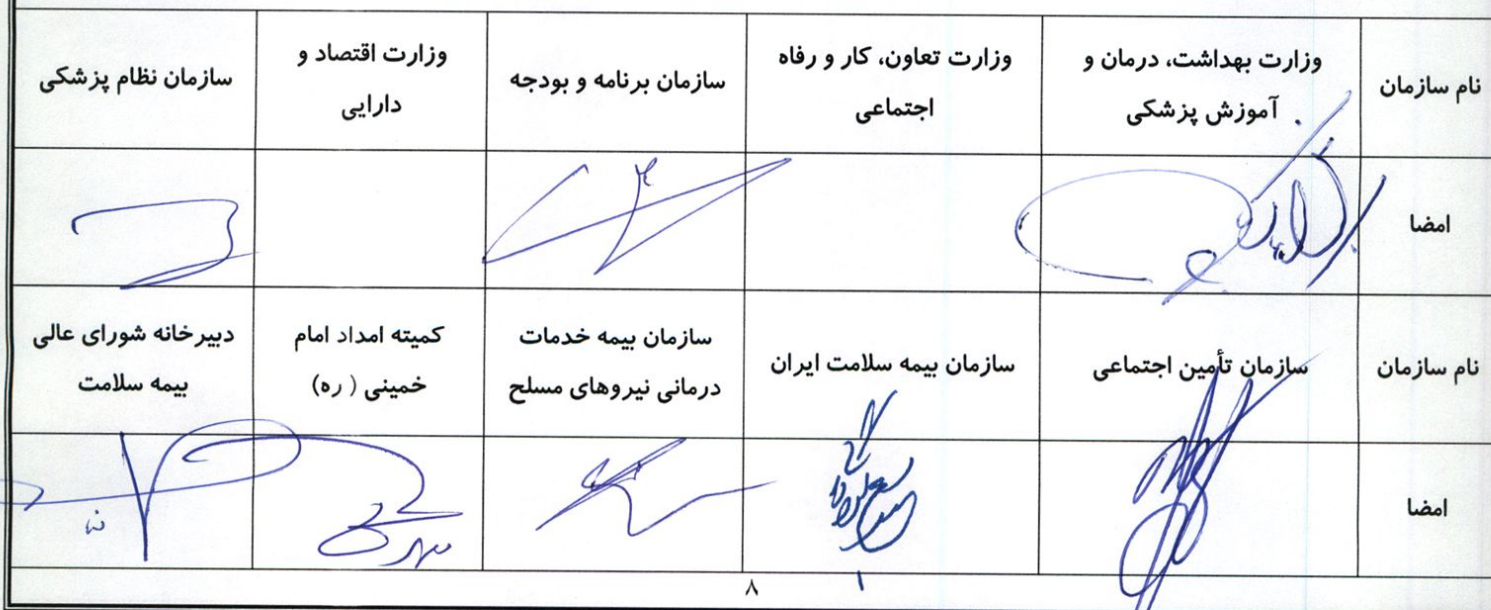 نام سازمان
وزارت بهداشت، درمان و
آموزش پزشکی
وزارت تعاون، کار و رفاه
اجتماعی
سازمان برنامه و بودجه
وزارت اقتصاد و
دارایی
سازمان نظام پزشکی
امضا
نام سازمان
سازمان تأمین اجتماعی
سازمان بیمه سلامت ایران
سازمان بیمه خدمات
درمانی نیروهای مسلح
کمیته امداد امام
خمینی ( ره)
دبیرخانه شورای عالی
بیمه سلامت
امضا
۸